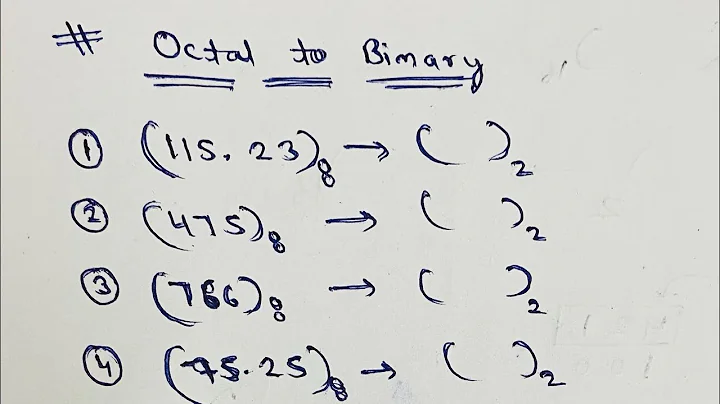 # Octal to Binary
① (115.23)₈ → ( )₂
② (475)₈ → ( )₂
③ (766)₈ → ( )₂
④ (75.25)₈ → ( )₂